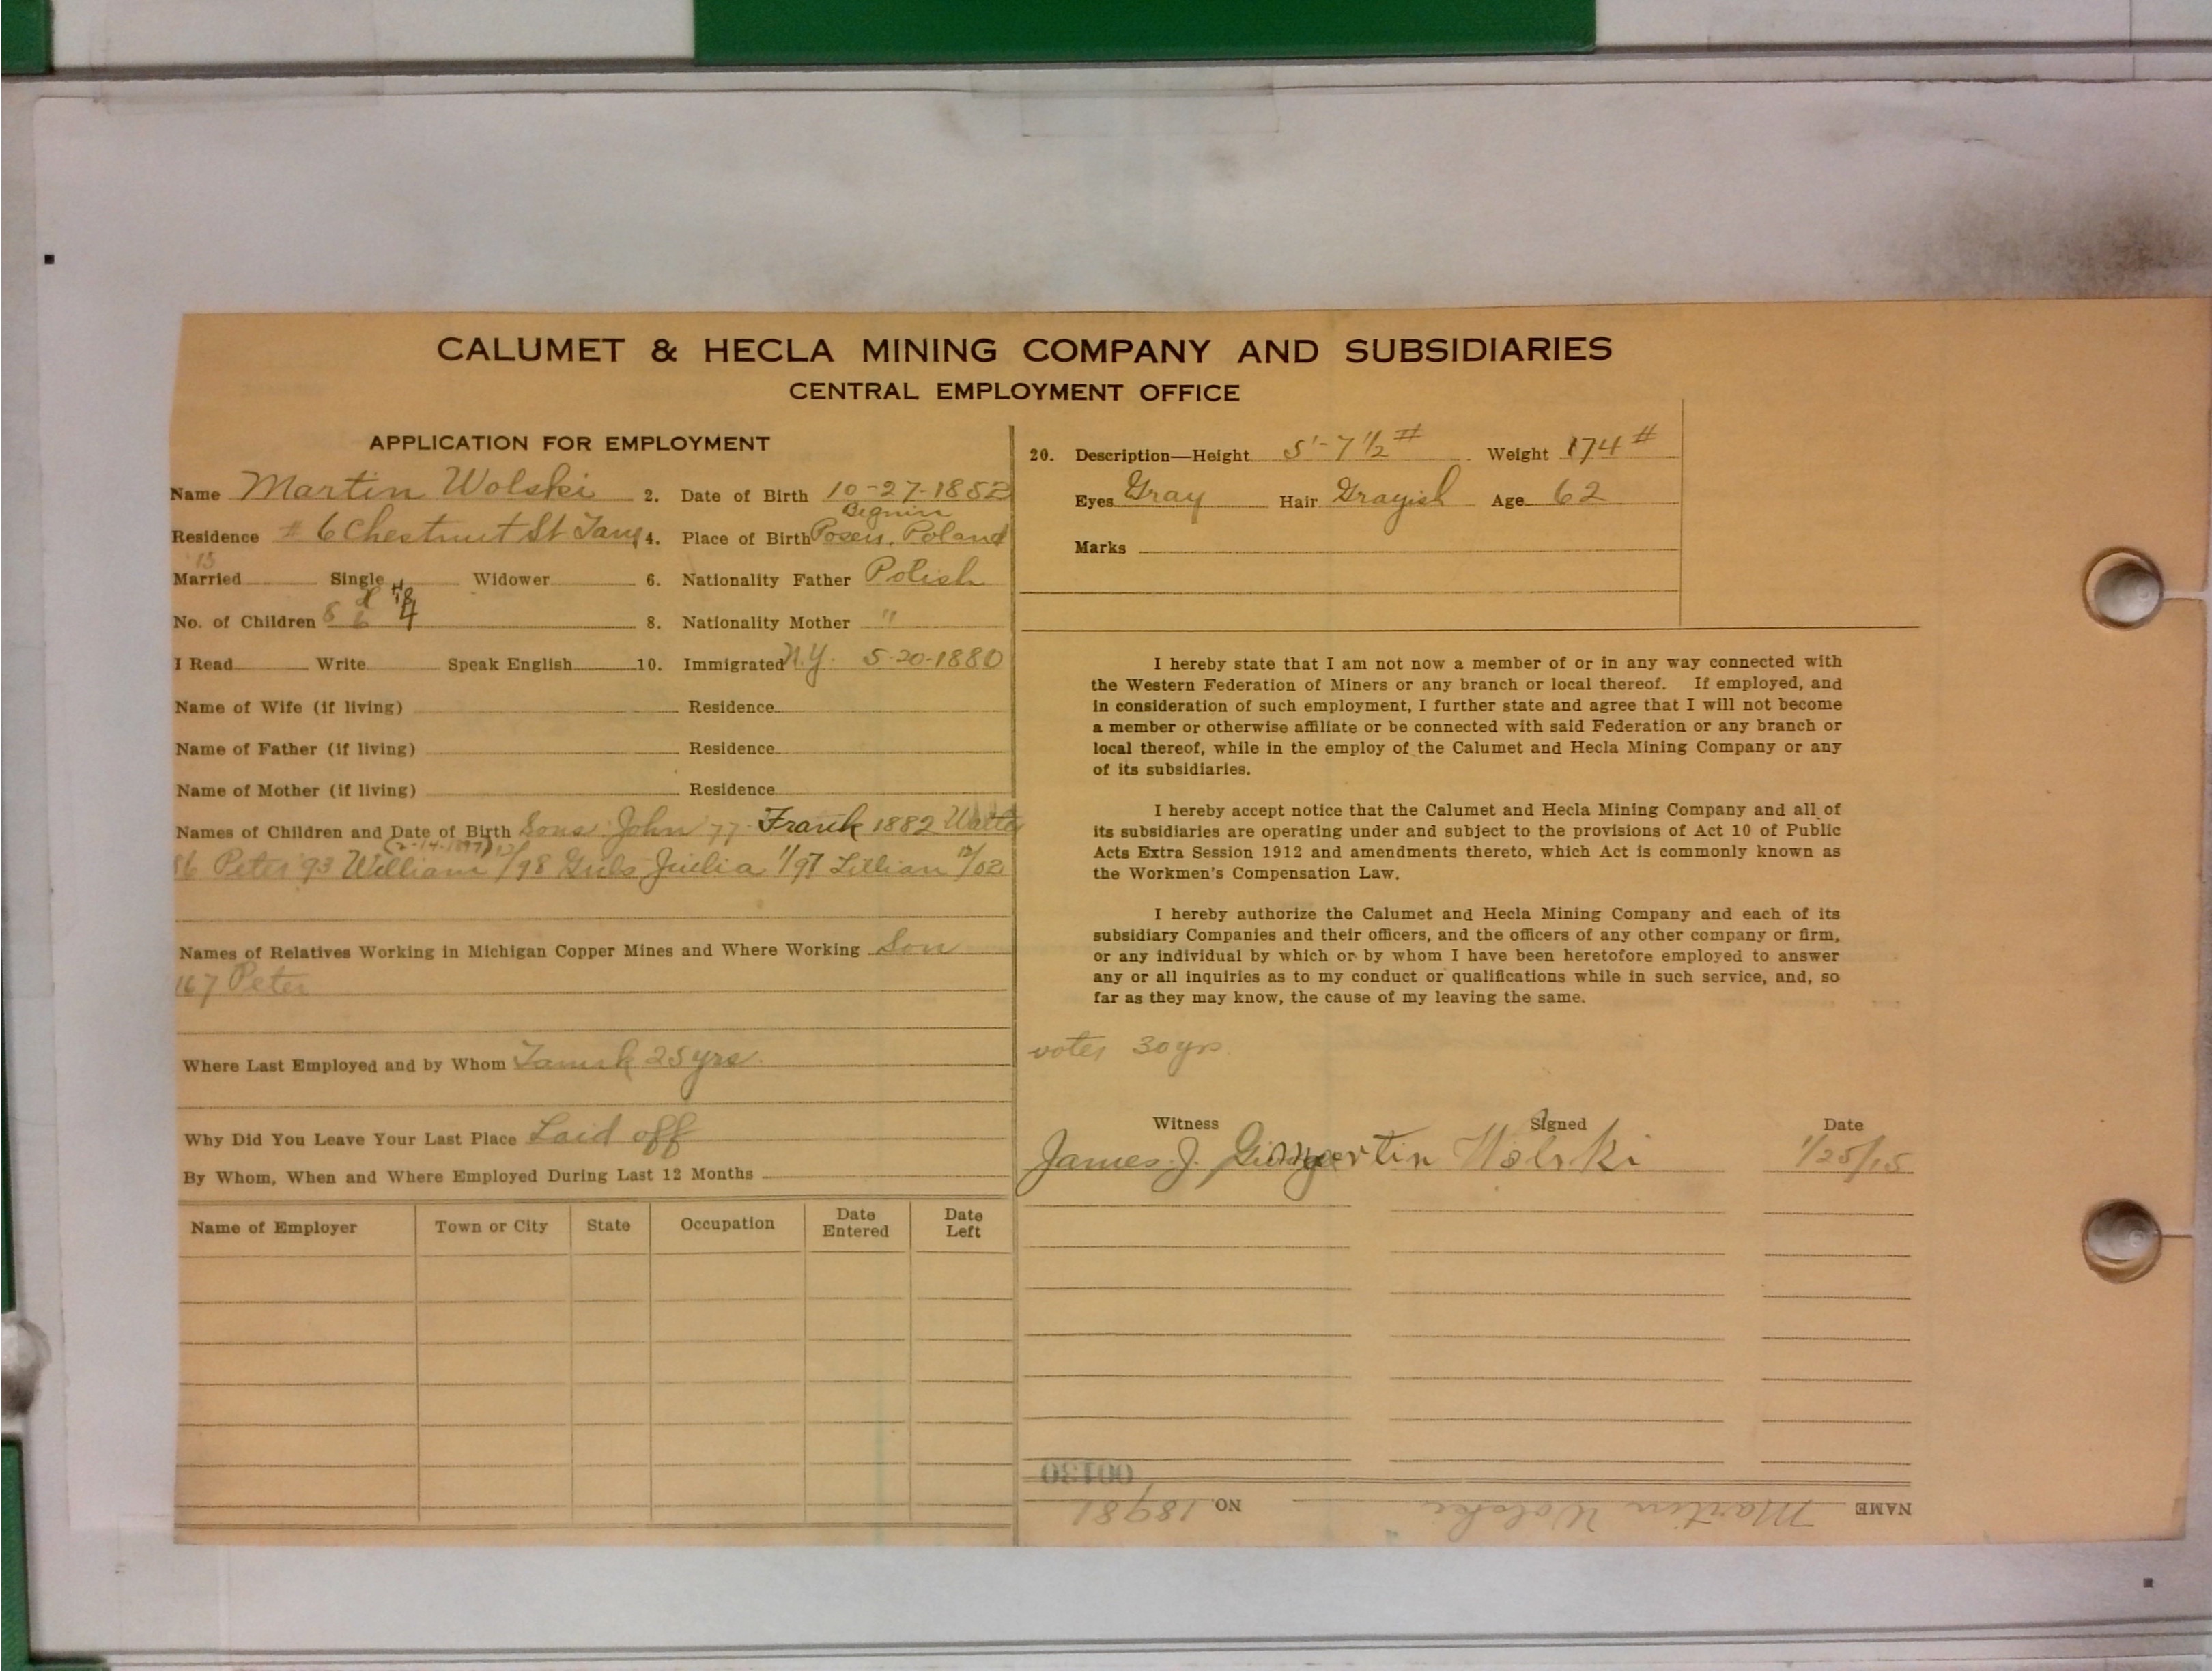 CALUMET & HECLA MINING COMPANY AND SUBSIDIARIES
CENTRAL EMPLOYMENT OFFICE
APPLICATION FOR EMPLOYMENT
Name Martin Wolski 2. Date of Birth 10-27-1852
Residence # 6 Chestnut St Tam 4. Place of Birth Posen, Poland
Married Single Widower 6. Nationality Father Polish
No. of Children 8 6 4 8. Nationality Mother "
I Read Write Speak English 10. Immigrated N.Y. 5-20-1880
Name of Wife (if living) Residence
Name of Father (if living) Residence
Name of Mother (if living) Residence
Names of Children and Date of Birth Sons John 77 Frank 1882 Walter
86 Peter 93 William 12/98 Girls Julia 1/97 Lillian 12/02
Names of Relatives Working in Michigan Copper Mines and Where Working Son
167 Peter
Where Last Employed and by Whom Tamrk 25 yrs.
Why Did You Leave Your Last Place Laid off
By Whom, When and Where Employed During Last 12 Months
Name of Employer Town or City State Occupation Date Entered Date Left
20. Description—Height 5'-7 1/2 # Weight 174 #
Eyes Gray Hair Grayish Age 62
Marks
I hereby state that I am not now a member of or in any way connected with
the Western Federation of Miners or any branch or local thereof. If employed, and
in consideration of such employment, I further state and agree that I will not become
a member or otherwise affiliate or be connected with said Federation or any branch or
local thereof, while in the employ of the Calumet and Hecla Mining Company or any
of its subsidiaries.
I hereby accept notice that the Calumet and Hecla Mining Company and all of
its subsidiaries are operating under and subject to the provisions of Act 10 of Public
Acts Extra Session 1912 and amendments thereto, which Act is commonly known as
the Workmen's Compensation Law.
I hereby authorize the Calumet and Hecla Mining Company and each of its
subsidiary Companies and their officers, and the officers of any other company or firm,
or any individual by which or by whom I have been heretofore employed to answer
any or all inquiries as to my conduct or qualifications while in such service, and, so
far as they may know, the cause of my leaving the same.
votes 30 yrs
Witness Signed Date
James J. Martin Wolski 1/25/15
00130
NAME Martin Wolski NO. 18981